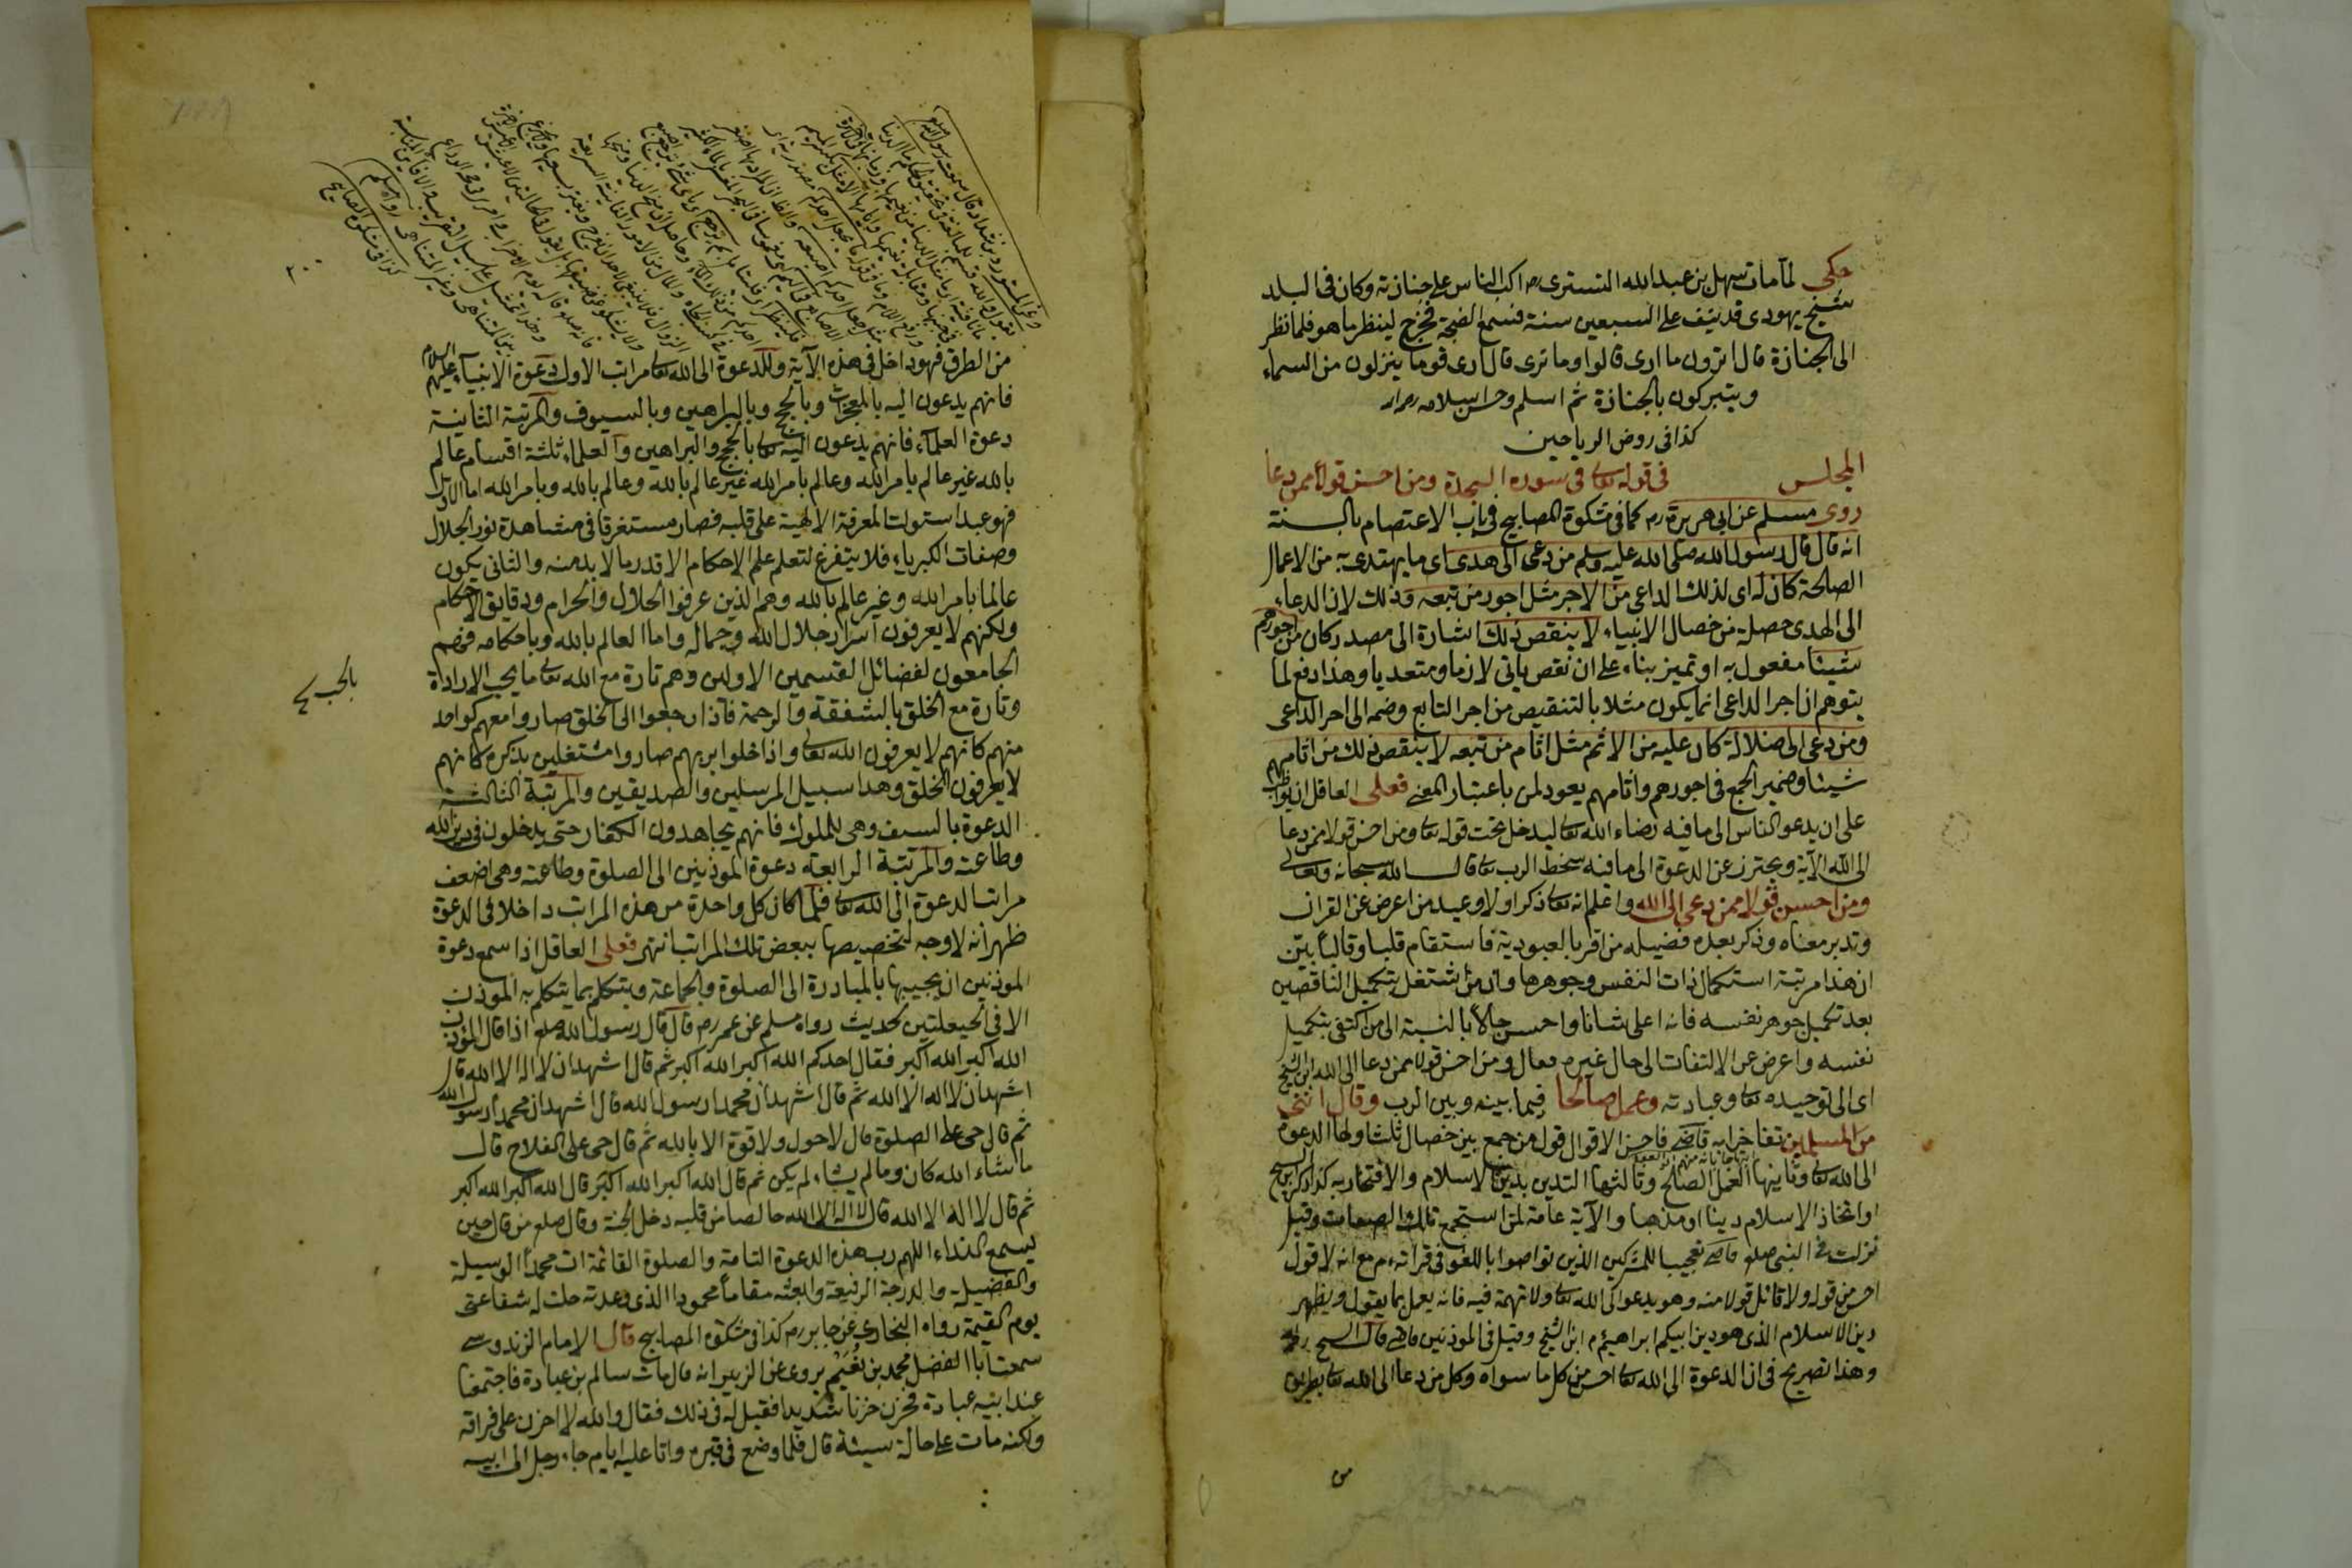 حكى لما مات سهل بن عبد الله التستري رح اكب الناس على جنازته وكان في البلد
شيخ يهودى قد نيف على السبعين سنة فسمع الضجة فخرج لينظر ما هو فلما نظر
الى الجنازة قال اترون ما ارى قالوا وما ترى قال ارى قوما ينزلون من السماء
ويتبركون بالجنازة ثم اسلم وحسن اسلامه
كذا في روض الرياحين
المجلس في قوله تعا في سورة السجدة ومن احسن قولا ممن دعا
روى مسلم عن ابى هريرة رم كما في مشكوة المصابيح في باب الاعتصام بالسنة
انه قال قال رسول الله صلى الله عليه وسلم من دعى الى هدى اى ما يهتدى به من الاعمال
الصالحة كان له اى لذلك الداعى من الاجر مثل اجور من تبعه وذلك لان الدعاء
الى الهدى خصلة من خصال الانبياء لا ينقص ذلك اشارة الى مصدر كان من اجورهم
شيئا مفعول به او تميز بناء على ان نقص ياتى لازما ومتعديا وهذا دفع لما
يتوهم ان اجر الداعى انما يكون مثلا بالتنقيص من اجر التابع وضمه الى اجر الداعى
ومن دعى الى ضلالة كان عليه من الاثم مثل اثام من تبعه لا ينقص ذلك من اثامهم
شيئا وضمير الجمع في اجورهم واثامهم يعود لمن باعتبار المعنى فعلى العاقل ان يواظب
على ان يدعو الناس الى ما فيه رضاء الله تعا ليدخل تحت قوله تعا ومن احسن قولا ممن دعا
الى الله الآية ويحترز عن الدعوة الى ما فيه سخط الرب تعا قال الله سبحانه وتعالى
ومن احسن قولا ممن دعى الى الله واعلم انه تعا ذكر اولا وعيد من اعرض عن القران
وتدبر معناه وذكر بعده فضيلة من اقر بالعبودية فاستقام قلبا وقالبا بين
ان هذا مرتبة استكمال ذات النفس وجوهرها وان من اشتغل بتكميل الناقصين
بعد تكميل جوهر نفسه فانه اعلى شانا واحسن حالا بالنسبة الى من اكتفى بتكميل
نفسه واعرض عن الالتفات الى حال غيره فقال ومن احسن قولا ممن دعا الى الله ابن الشيخ
اى الى توحيده تعا وعبادته وعمل صالحا فيما بينه وبين الرب وقال اننى
من المسلمين تفاخرا به قاضى فاحسن الاقوال قول من جمع بين خصال ثلث اولها الدعوة
الى الله تعا وثانيها العمل الصالح وثالثها التدين بدين الاسلام والافتخار به كذا ذكر ابن الشيخ
او اتخاذ الاسلام دينا او مذهبا والآية عامة لمن استجمع تلك الصفات وقيل
نزلت في النبى صلعم قاضى تعجيبا للمشركين الذين تواصوا باللغو في قرائته م مع انه لا قول
احسن من قوله ولا قائل قولا منه وهو يدعوا الى الله تعا ولا تهمة فيه فانه يعمل بما يقول ويظهر
دين الاسلام الذى هو دين ابيكم ابراهيم م ابن الشيخ وقيل في الموذنين قاضى قال الشيخ
وهذا تصريح في ان الدعوة الى الله تعا احسن من كل ما سواه وكل من دعا الى الله تعا بطريق
من الطرق فهو داخل في هذه الآية وللدعوة الى الله تعا مراتب الاول دعوة الانبياء عليهم السلام
فانهم يدعون اليه بالمعجزات وبالحجج وبالبراهين وبالسيوف والمرتبة الثانية
دعوة العلماء فانهم يدعون اليه تعا بالحجج والبراهين والعلماء ثلثة اقسام عالم
بالله غير عالم بامر الله وعالم بامر الله غير عالم بالله وعالم بالله وبامر الله اما الاول
فهو عبد استولت المعرفة الالهية على قلبه فصار مستغرقا في مشاهدة نور الجلال
وصفات الكبرياء فلا يتفرغ لتعلم علم الاحكام الا قدر ما لا بد منه والثانى يكون
عالما بامر الله وغير عالم بالله وهم الذين عرفوا الحلال والحرام ودقايق الاحكام
ولكنهم لا يعرفون اسرار جلال الله وجماله واما العالم بالله وباحكامه فهم
الجامعون لفضائل القسمين الاولين وهم تارة مع الله تعا ما يجب الارادة
بالحب
وتارة مع الخلق بالشفقة والرحمة فاذا رجعوا الى الخلق صاروا معهم كواحد
منهم كانهم لا يعرفون الله تعا واذا خلوا بربهم صاروا مشتغلين بذكره كانهم
لا يعرفون الخلق وهذا سبيل المرسلين والصديقين والمرتبة الثالثة
الدعوة بالسيف وهى للملوك فانهم يجاهدون الكفار حتى يدخلون في دين الله
وطاعته والمرتبة الرابعة دعوة الموذنين الى الصلوة وطاعته وهى اضعف
مراتب الدعوة الى الله تعا فلما كان كل واحدة من هذه المراتب داخلا في الدعوة
ظهر انه لا وجه لتخصيصها ببعض تلك المراتب انتهى فعلى العاقل اذا سمع دعوة
الموذنين ان يجيبها بالمبادرة الى الصلوة والجماعة ويتكلم بما يتكلم به الموذن
الا في الحيعلتين لحديث رواه مسلم عن عمر رم قال قال رسول الله صلعم اذا قال الموذن
الله اكبر الله اكبر فقال احدكم الله اكبر الله اكبر ثم قال اشهد ان لا اله الا الله قال
اشهد ان لا اله الا الله ثم قال اشهد ان محمدا رسول الله قال اشهد ان محمدا رسول الله
ثم قال حى على الصلوة قال لا حول ولا قوة الا بالله ثم قال حى على الفلاح قال
ما شاء الله كان وما لم يشاء لم يكن ثم قال الله اكبر الله اكبر قال الله اكبر الله اكبر
ثم قال لا اله الا الله قال لا اله الا الله خالصا من قلبه دخل الجنة وقال صلعم من قال حين
يسمع النداء اللهم رب هذه الدعوة التامة والصلوة القائمة ات محمدا الوسيلة
والفضيلة والدرجة الرفيعة وابعثه مقاما محمودا الذى وعدته حلت له شفاعتى
يوم القيمة رواه البخارى عن جابر رم كذا في مشكوة المصابيح قال الامام الزندوسى
سمعت ابا الفضل محمد بن نعيم يروى عن الزبير انه قال مات سالم بن عبادة فاجتمعنا
عند ابنيه عبادة فحزن حزنا شديدا فقيل له في ذلك فقال والله لا احزن على فراقه
ولكنه مات على حالة سيئة قال فلما وضع في قبره واتا عليه ايام جاء رجل الى ابيه